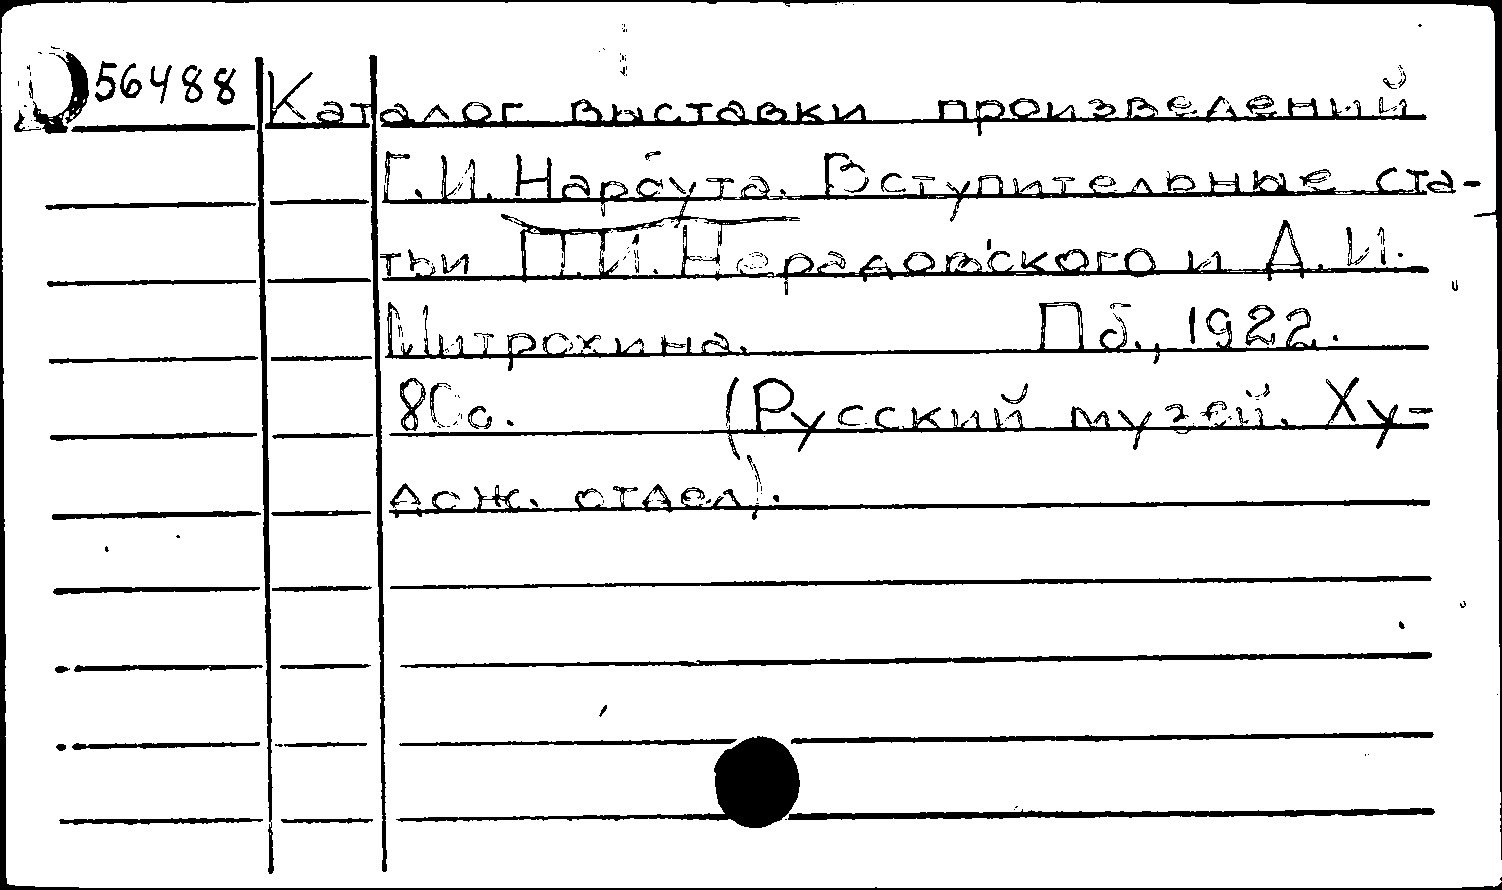 D 56488 Каталог выставки произведений
Г.И. Нарбута. Вступительные ста-
тьи П.И. Нерадовского и Д.И.
Митрохина. Пб., 1922.
80с. (Русский музей. Ху-
дож. отдел).